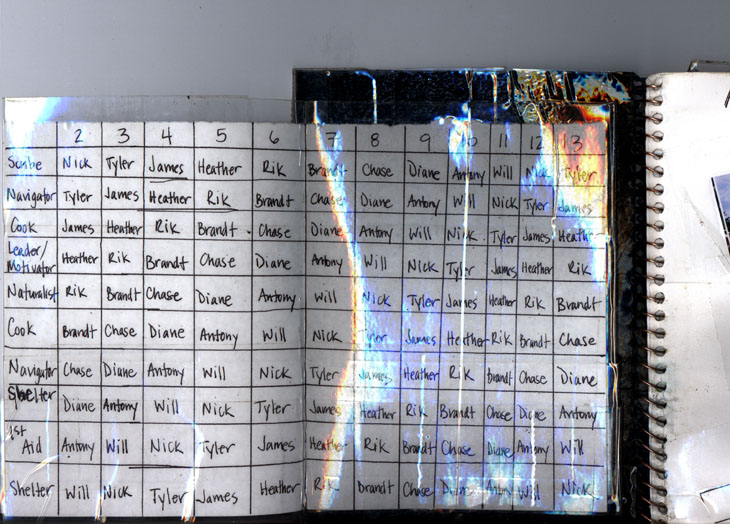 2 3 4 5 6 7 8 9 10 11 12 13
Scribe Nick Tyler James Heather Rik Brandt Chase Diane Antony Will Nick Tyler
Navigator Tyler James Heather Rik Brandt Chase Diane Antony Will Nick Tyler James
Cook James Heather Rik Brandt Chase Diane Antony Will Nick Tyler James Heather
Leader/
Motivator Heather Rik Brandt Chase Diane Antony Will Nick Tyler James Heather Rik
Naturalist Rik Brandt Chase Diane Antony Will Nick Tyler James Heather Rik Brandt
Cook Brandt Chase Diane Antony Will Nick Tyler James Heather Rik Brandt Chase
Navigator Chase Diane Antony Will Nick Tyler James Heather Rik Brandt Chase Diane
Shelter Diane Antony Will Nick Tyler James Heather Rik Brandt Chase Diane Antony
1st
Aid Antony Will Nick Tyler James Heather Rik Brandt Chase Diane Antony Will
Shelter Will Nick Tyler James Heather Rik Brandt Chase Diane Antony Will Nick